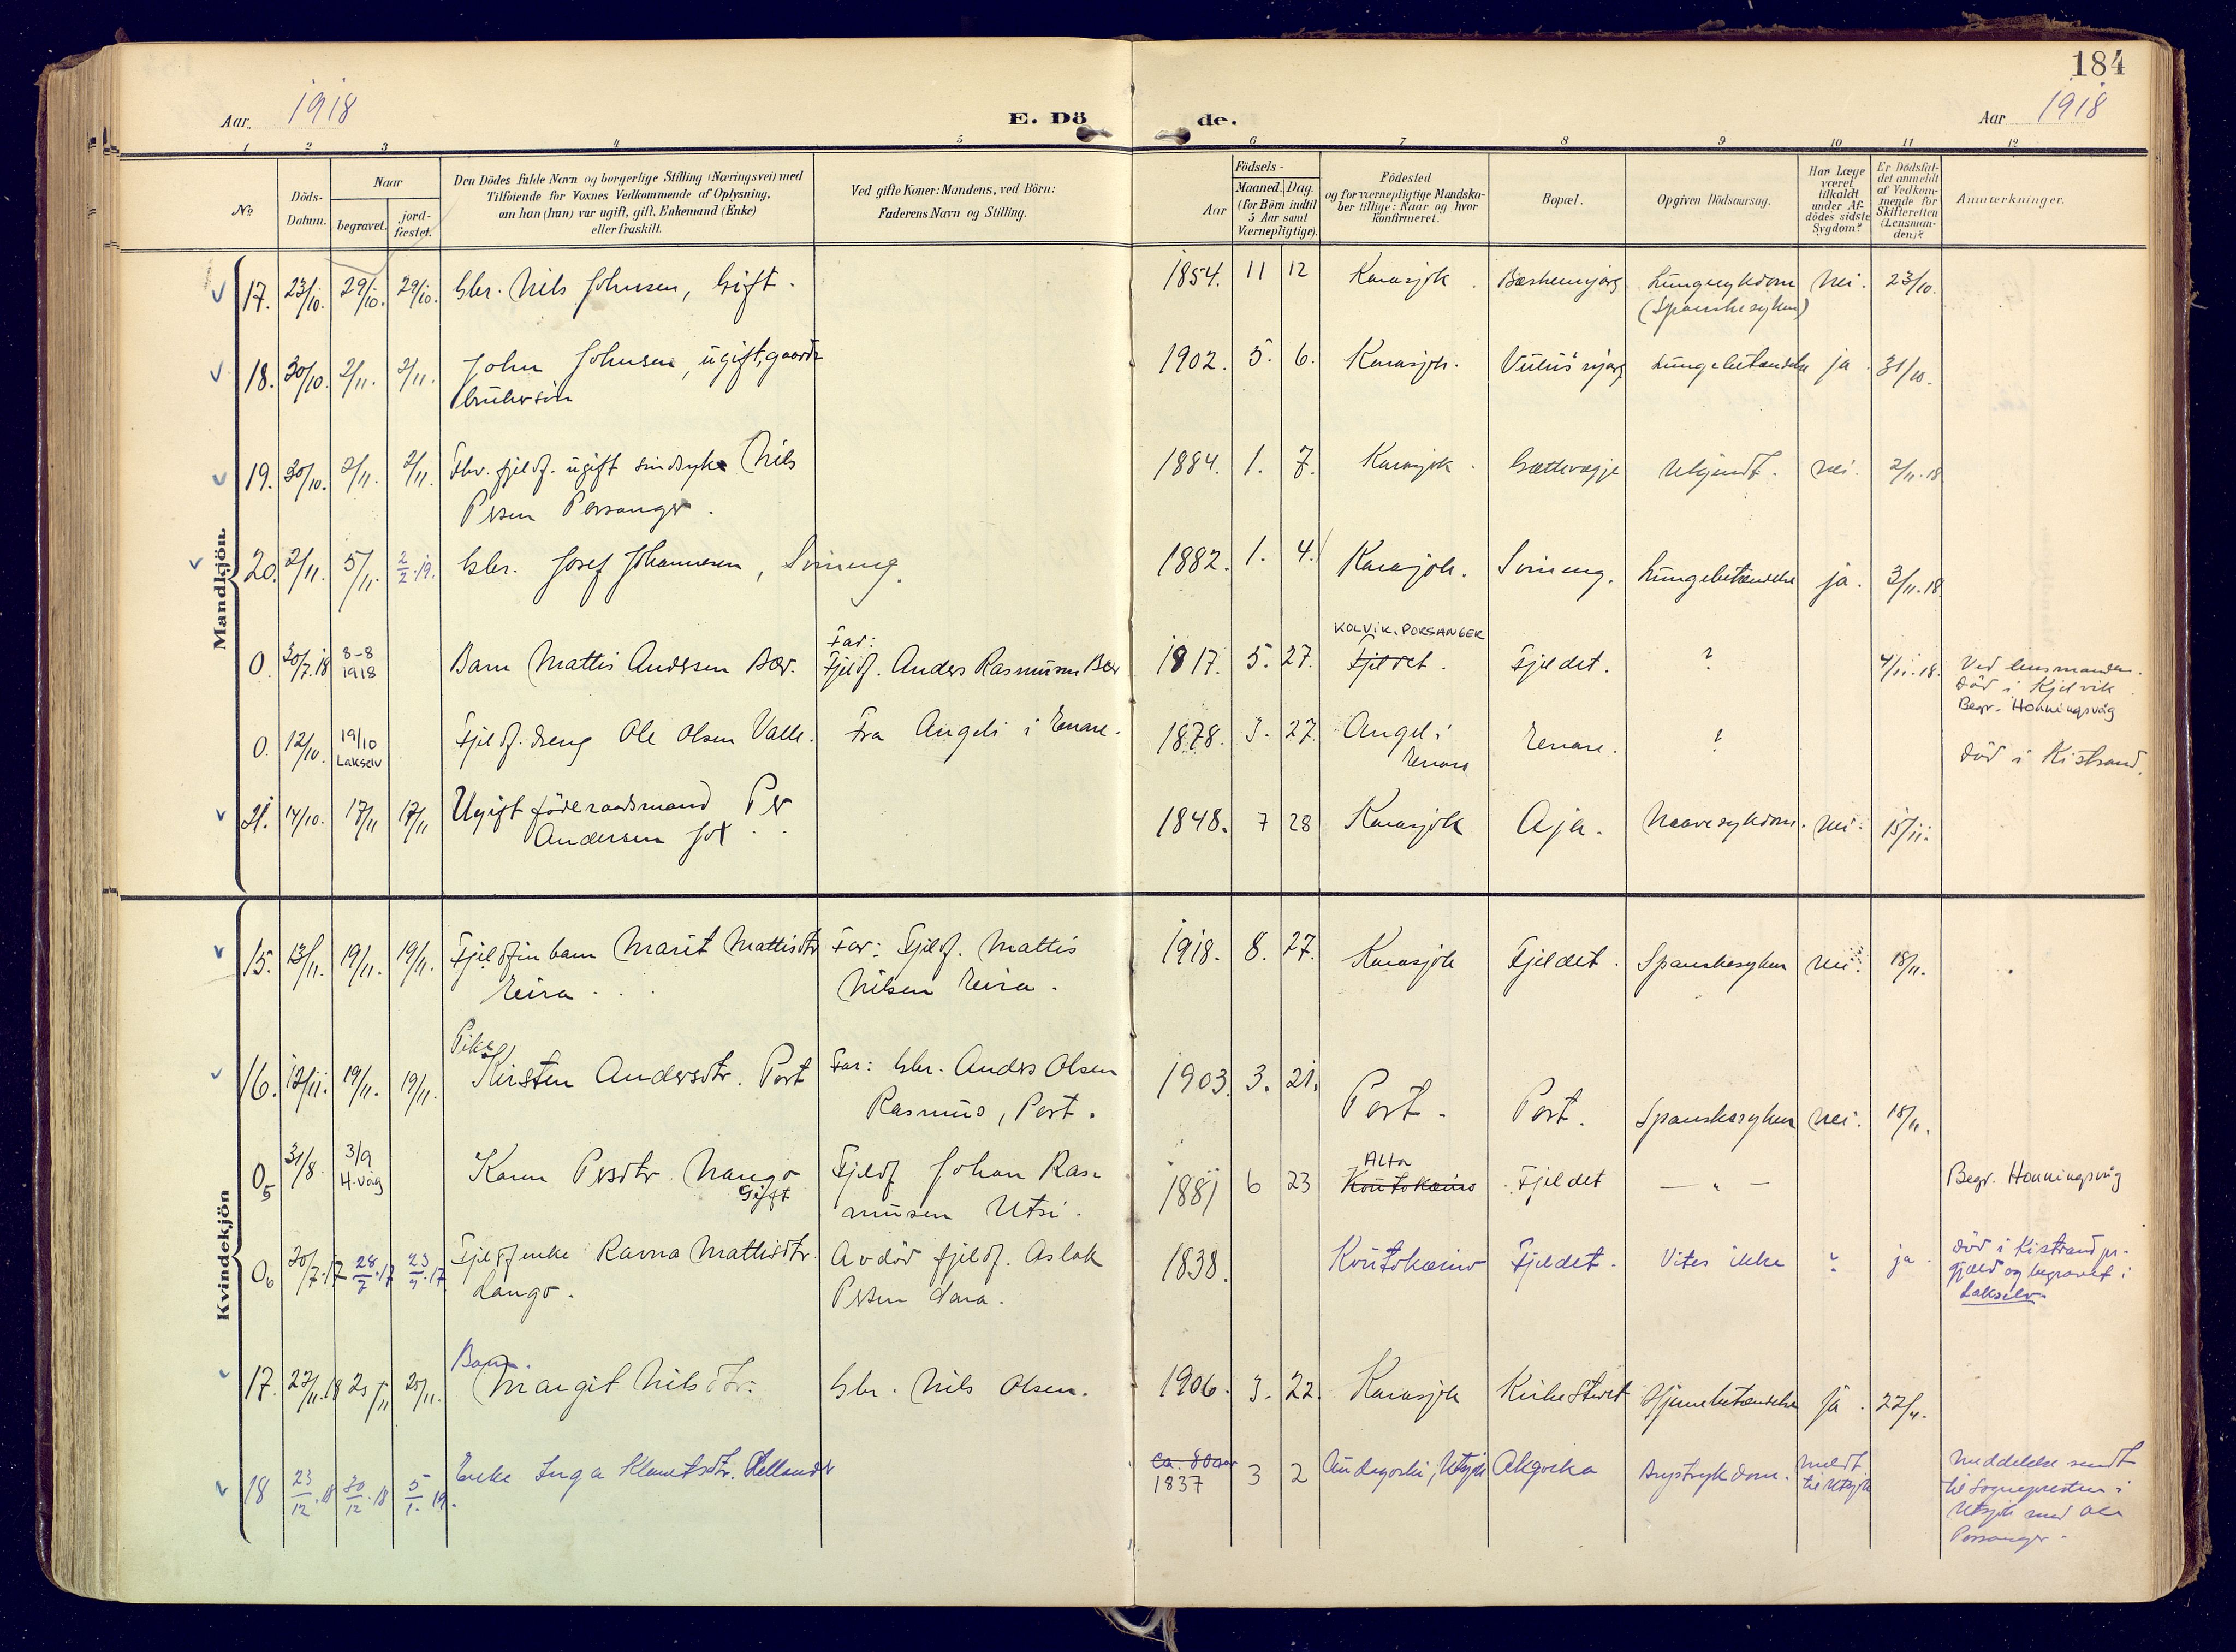 184
Aar 1918
E. Dö de.
Aar 1918
1 2 3 4 5 6 7 8 9 10 11 12
No
Döds-Datum.
Naar
begravet.
jord-fæstet.
Den Dödes fulde Navn og borgerlige Stilling (Næringsvei) med
Tilföiende for Voxnes Vedkommende af Oplysning,
om han (hun) var ugift, gift, Enkemand (Enke)
eller fraskilt.
Ved gifte Koner: Mandens, ved Börn:
Faderens Navn og Stilling.
Födsels-
Aar
Maaned. Dag.
(for Börn indtil
5 Aar samt
Værnepligtige).
Födested
og for værnepligtige Mandska-
ber tillige: Naar og hvor
konfirmeret.
Bopæl.
Opgiven Dödsaarsag.
Har Læge
været
tilkaldt
under Af-
dödes sidste
Sygdom?
Er Dödsfal-
det anmeldt
af Vedkom-
mende for
Skifteretten
(Lensman-
den)?
Anmærkninger.
Mandkjön.
17. 23/10. 29/10. 29/10. Gbr. Nils Johnsen, Gift. 1854. 11 12 Karasjok. Bæskennjarg Lungesykdom Nei. 23/10.
(Spanskesyken)
18. 30/10. 2/11. 2/11. John Johnsen, ugift, gaard- 1902. 5. 6. Karasjok. Vuluš njarg Lungebetændelse ja. 31/10.
brukersön
19. 30/10. 2/11. 2/11. Fhv. fjeldf. ugift sindsyke Nils 1884. 1. 7. Karasjok. Gættevagje Ukjendt. nei. 2/11.18
Persen Porsanger.
20. 2/11. 5/11. 2/2.19. Gbr. Josef Johannesen, Svineng. 1882. 1. 4. Karasjok. Svineng. Lungebetændelse ja. 3/11.18.
0. 30/7.18 8-8 1918 Barn Mattis Andersen Bær. Far: Fjeldf. Anders Rasmusen Bær 1817. 5. 27. Fjeldet. KOLVIK. PORSANGER Fjeldet. ? 4/11.18. Ved lensmanden.
Död i Kjelvik.
Begr. Honningsvåg
0. 12/10. 19/10 Lakselv Fjeldf. dreng Ole Olsen Valle. Fra Angeli i Enare. 1878. 3. 27. Angeli Enare Enare. ? Död i Kistrand.
21. 14/10. 17/11 17/11 Ugift föderaadsmand Per 1848. 7 28 Karasjok Aja. Mavesykdom. nei. 15/11.
Andersen Jot
Kvindekjön
15. 13/11. 19/11. 19/11. Fjeldfin barn Marit Mattisdtr Far: Fjeldf. Mattis 1918. 8. 27. Karasjok Fjeldet. Spanskesyken nei. 18/11.
Eira. Nilsen Eira.
16. 12/11. 19/11. 19/11. Pike Kirsten Andersdtr. Port Far: Gbr. Anders Olsen 1903. 3. 21. Port. Port. Spanskesyken nei. 18/11.
Rasmus, Port.
0 5 31/8. 3/9 H.våg Karen Persdtr. Nango Gift Fjeldf Johan Ras- 1881 6 23 Alta Koutokæino Fjeldet — " — Begr. Honningsvåg
musen Utsi.
0 6 20/7.17 28/7.17 23/9.17 Fjeldf enke Ravna Mattisdtr. Avdöd fjeldf. Aslak 1838. Koutokæino Fjeldet. Vites ikke ? ja. Död i Kistrand pr.
Lango. Persen Sara. gjæld og begravet i
Lakselv.
17. 22/11.18 25/11 25/11. Barn. Margit Nilsdtr: Gbr. Nils Olsen. 1906. 3. 22. Karasjok Kirkestedet Hjernebetændelse Ja. 22/11.
18 23/12.18 30/12.18 5/1.19. Enke Inga Klemetsdtr. Hellander ca. 80 aar 1837 3 2 Utsjok Brystsykdom. meldt til Utsjok Meddelelse sendt
til Sognepresten i
Utsjok med Ole
Porsanger.